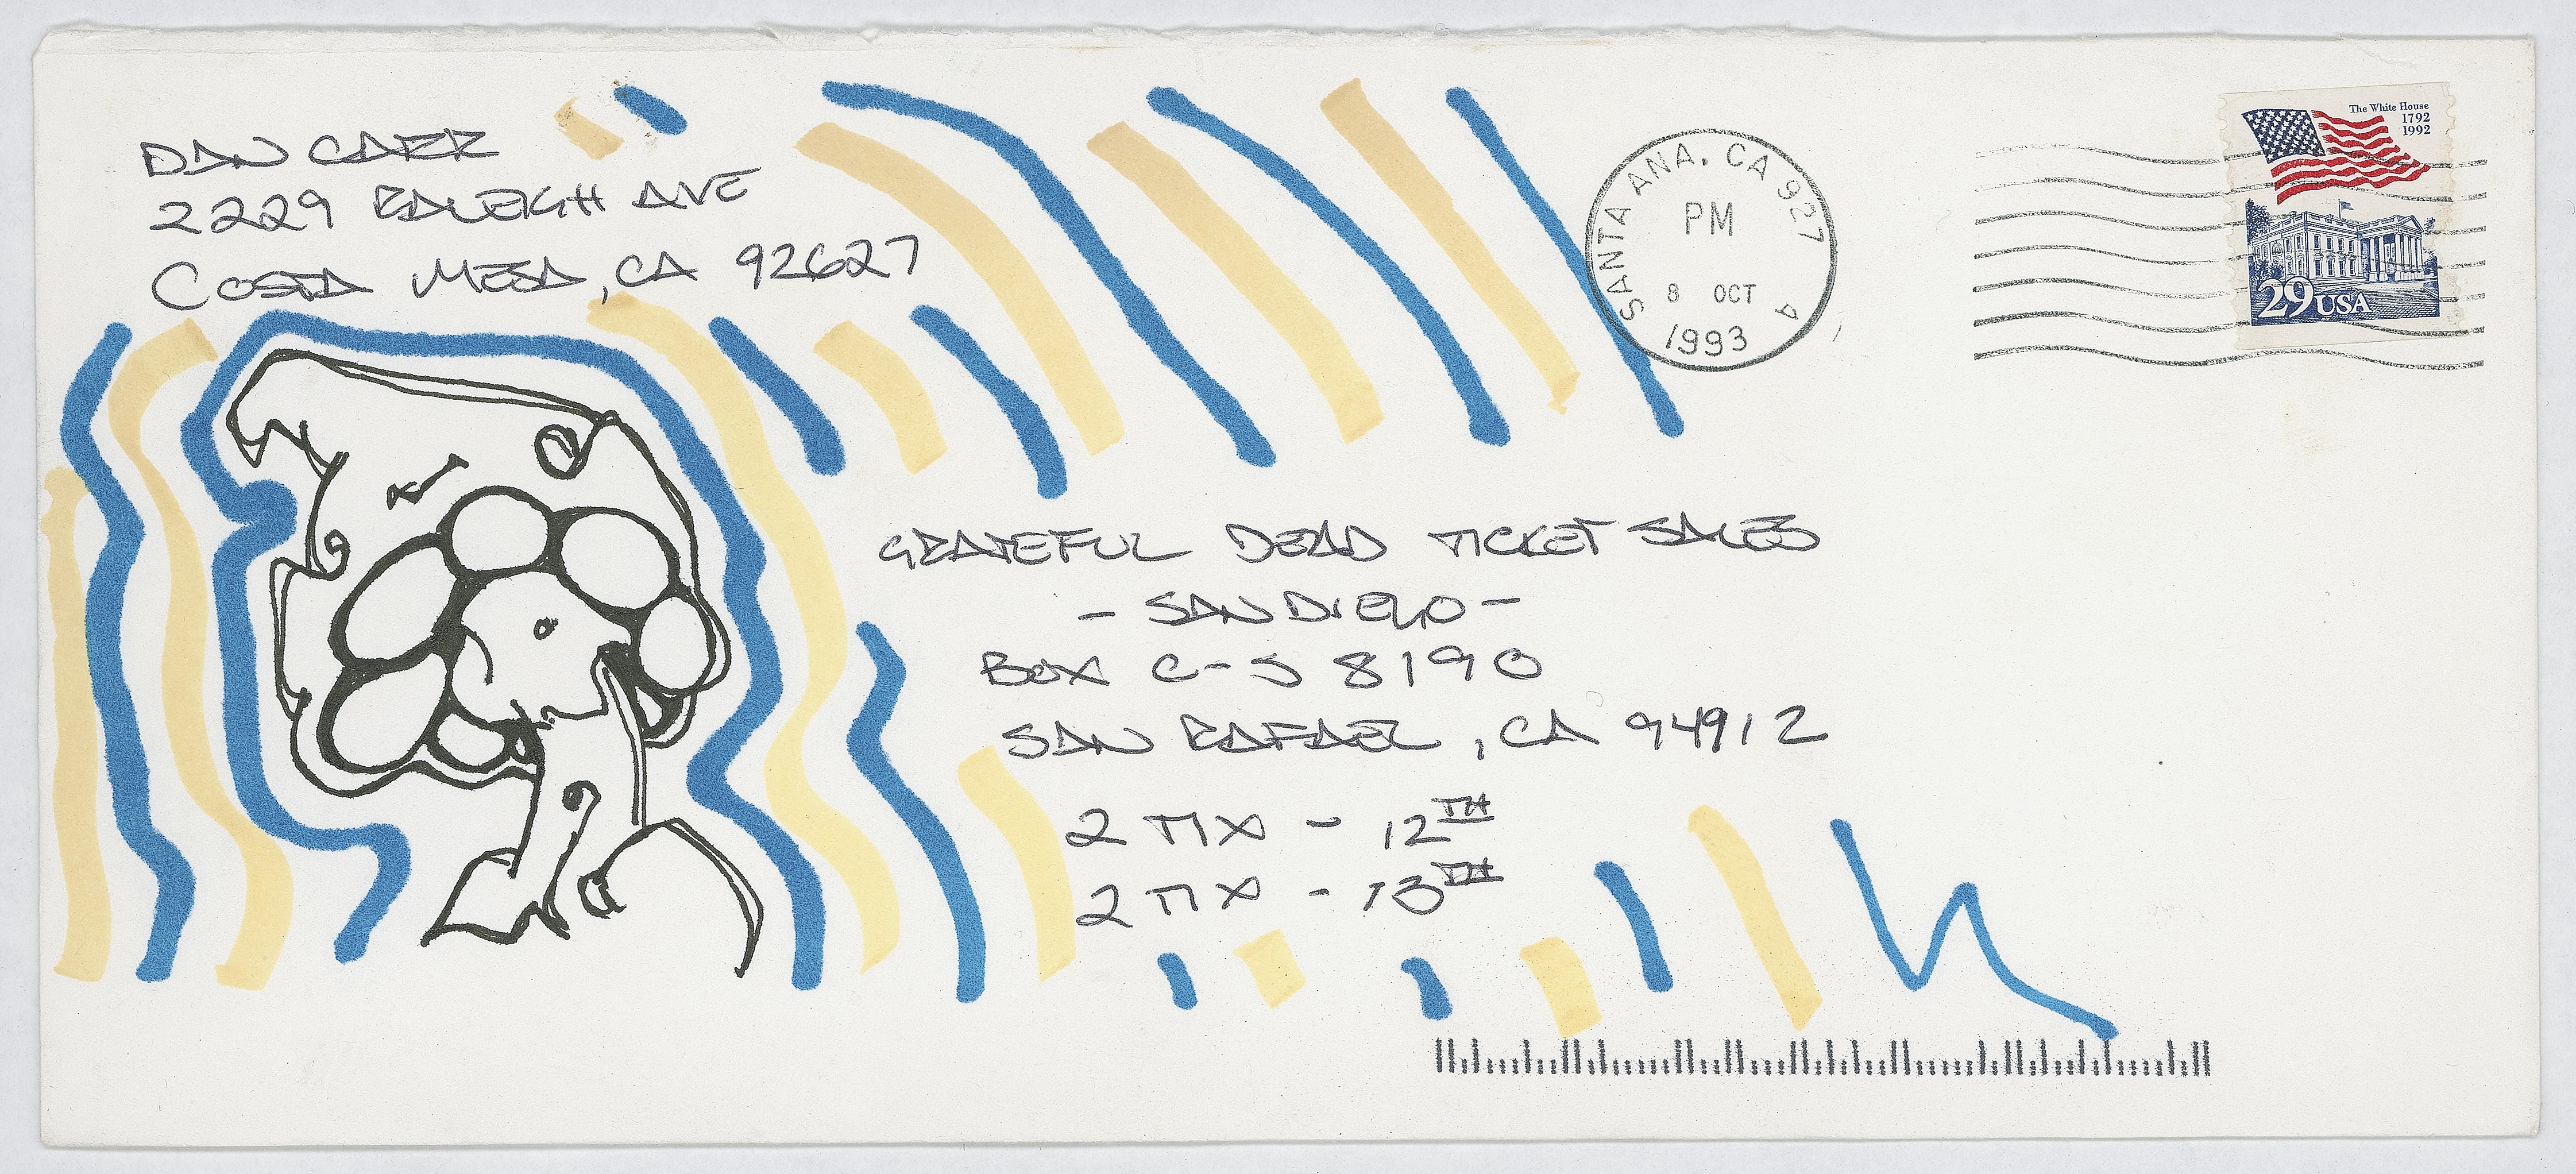 DAN CARR
2229 RALEIGH AVE
COSTA MESA, CA 92627
SANTA ANA, CA 927
PM
8 OCT
1993
The White House
1792
1992
29 USA
GRATEFUL DEAD TICKET SALES
- SAN DIEGO -
BOX C-S 8190
SAN RAFAEL, CA 94912
2 TIX - 12TH
2 TIX - 13TH